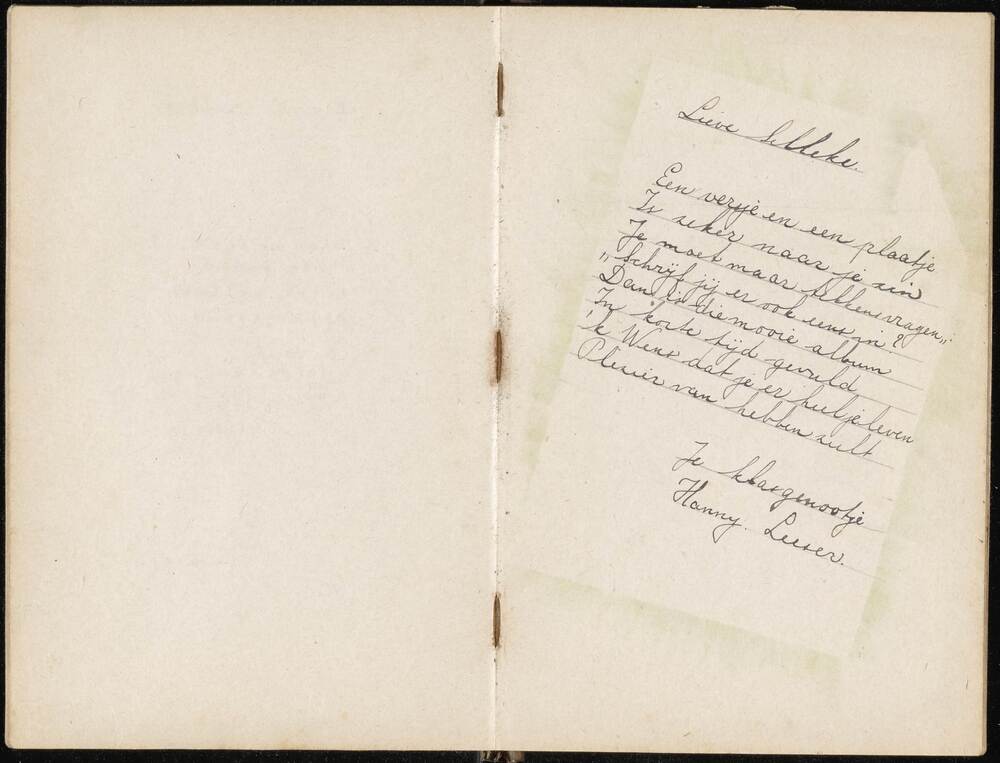 Lieve Selleke.
Een versje en een plaatje
Is zeker naar je zin
Je moet maar telkens vragen,,
,,Schrijf jij er ook eens in?
Dan is die mooie album
In korte tijd gevuld
'k Wens dat je er heel je leven
Plesier van hebben zult
Je klasgenootje
Hanny. Leeser.